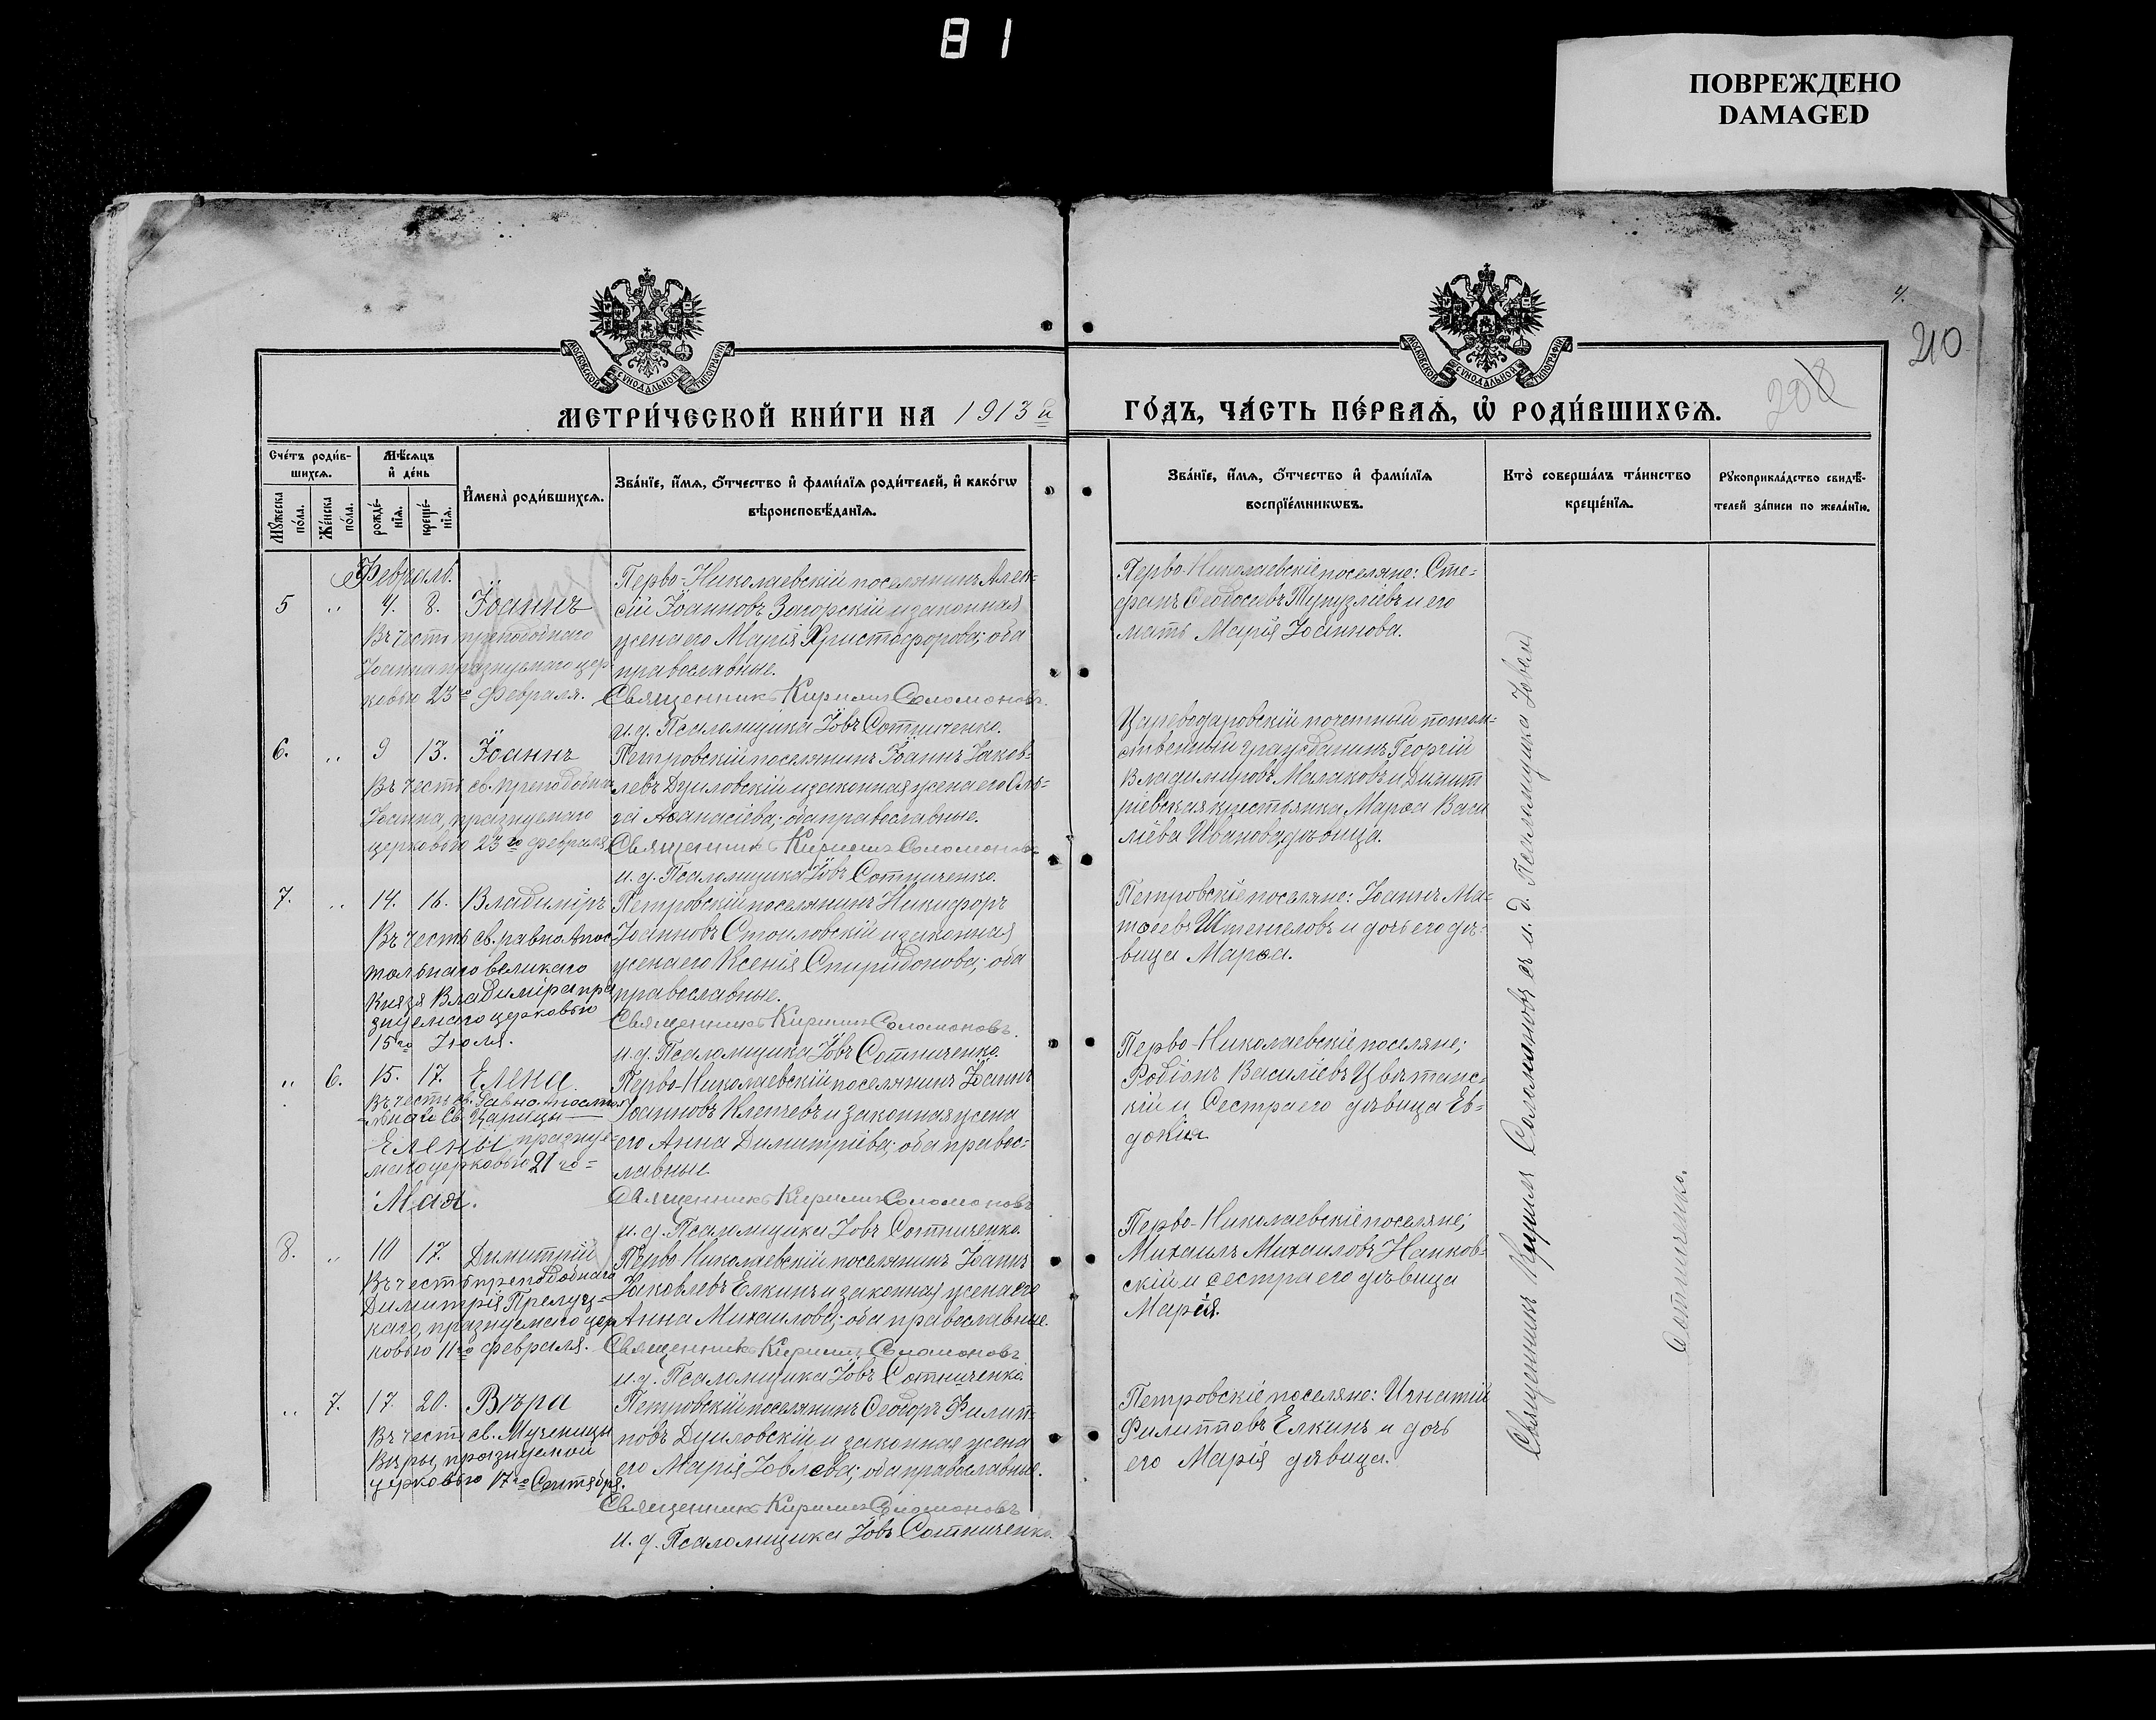 81
ПОВРЕЖДЕНО
DAMAGED
4.
210
208
МОСКОВСКОЙ СУНОДАЛЬНОЙ ТИПОГРАФІИ
МОСКОВСКОЙ СУНОДАЛЬНОЙ ТИПОГРАФІИ
МЕТРИ́ЧЕСКОЙ КНИ́ГИ НА 1913й
ГО́ДЪ, ЧА́СТЬ ПЕ́РВАѦ, Ѡ҆ РОДИ́ВШИХСѦ.
Сче́тъ роди́в-
шихсѧ.
Мѣ́сѧцъ
и҆ де́нь
И҆мена̀ роди́вшихсѧ.
Зва́нїе, и҆́мѧ, ѻ҆́тчество и҆ фами́лїѧ роди́телей, и҆ како́гѡ
вѣроисповѣ́данїѧ.
Мꙋ́жеска
по́ла.
Же́нска
по́ла.
рожде́-
нїѧ.
креще́-
нїѧ.
Зва́нїе, и҆́мѧ, ѻ҆́тчество и҆ фами́лїѧ
воспрїе́мникѡвъ.
Кто̀ соверша́лъ та́инство
креще́нїѧ.
Рꙋкоприкла́дство свидѣ́-
телей за́писи по жела́нїю.
Февраль.
5 „ 4. 8. Іоаннъ
Въ честь преподобнаго
Іоанна празнуемаго цер-
ковью 23го февраля.
Перво-Николаевскій поселянинъ Алек-
сій Іоанновъ Загорскій и законная
жена его Марія Христофорова; оба
православные.
Священникъ Кириллъ Соломоновъ.
и.д. Псаломщика Іовъ Сотниченко.
Перво-Николаевскіе поселяне: Сте-
фанъ Ѳеодосіевъ Тупузліевъ и его
мать Марія Іоаннова.
6. „ 9 13. Іоаннъ
Въ честь св. преподобна-
Іоанна, празнуемаго
церковью 23го февраля
Петровскій поселянинъ Іоаннъ Іаков-
левъ Дуиловскій и законная жена его Оль-
га Аѳанасіева; оба православные.
Священникъ Кириллъ Соломоновъ
и.д. Псаломщика Іовъ Сотниченко.
Цареводаровскій почетный потом-
ственный гражданинъ Георгій
Владимировъ Малаковъ и Димит
ріевская крестьянка Марѳа Васи
ліева Иванова, дѣвица.
7. „ 14. 16. Владиміръ
Въ честь св. равно Апос-
тольнаго великаго
Князя Владиміра пра
знуемаго церковью
15го Іюля.
Петровскій поселянинъ Никифоръ
Іоанновъ Стоиловскій и законная
жена его Ксенія Спиридонова; оба
православные.
Священникъ Кириллъ Соломоновъ.
и.д. Псаломщика Іовъ Сотниченко.
Петровскіе поселяне: Іоаннъ Ма-
тѳеевъ Штенгеловъ и дочь его дѣ-
вица Марѳа.
„ 6. 15. 17. Елена.
Въ честь св. Равноапосто-
льной Св. Царицы
Елены празнуе-
маго церковью 21го
Мая.
Перво-Николаевскій поселянинъ Іоаннъ
Іоанновъ Клепчевъ и законная жена
его Анна Димитріева; оба правос-
лавные
Священникъ Кириллъ Соломоновъ
и.д. Псаломщика Іовъ Сотниченко.
Перво-Николаевскіе поселяне;
Родіонъ Василіевъ Цвѣтанс-
кій и Сестра его дѣвица Ев-
докія
8. „ 10 17. Димитрій
Въ честь преподобнаго
Димитрія Прелуц-
каго, празнуемаго цер
ковью 11го февраля.
Перво Николаевскій поселянинъ Іоаннъ
Іаковлевъ Елкинъ и законная жена его
Анна Михаилова; оба православные.
Священникъ Кириллъ Соломоновъ
и.д. Псаломщика Іовъ Сотниченко
Перво-Николаевскіе поселяне;
Михаилъ Михаиловъ Напков-
скій и сестра его дѣвица
Марія.
„ 7. 17. 20. Вѣра
Въ честь св. Мученицы
Вѣры, празнуемой
церковью 17го Сентября.
Петровскій поселянинъ Ѳеодоръ Филип-
повъ Дуиловскій и законная жена
его Марія Іовлева; оба православные.
Священникъ Кириллъ Соломоновъ
и.д. Псаломщика Іовъ Сотниченко.
Петровскіе поселяне: Игнатій
Филипповъ Елкинъ и дочь
его Марія дѣвица.
Священникъ Кириллъ Соломоновъ съ и.д. Псаломщика Іовомъ
Сотниченко.